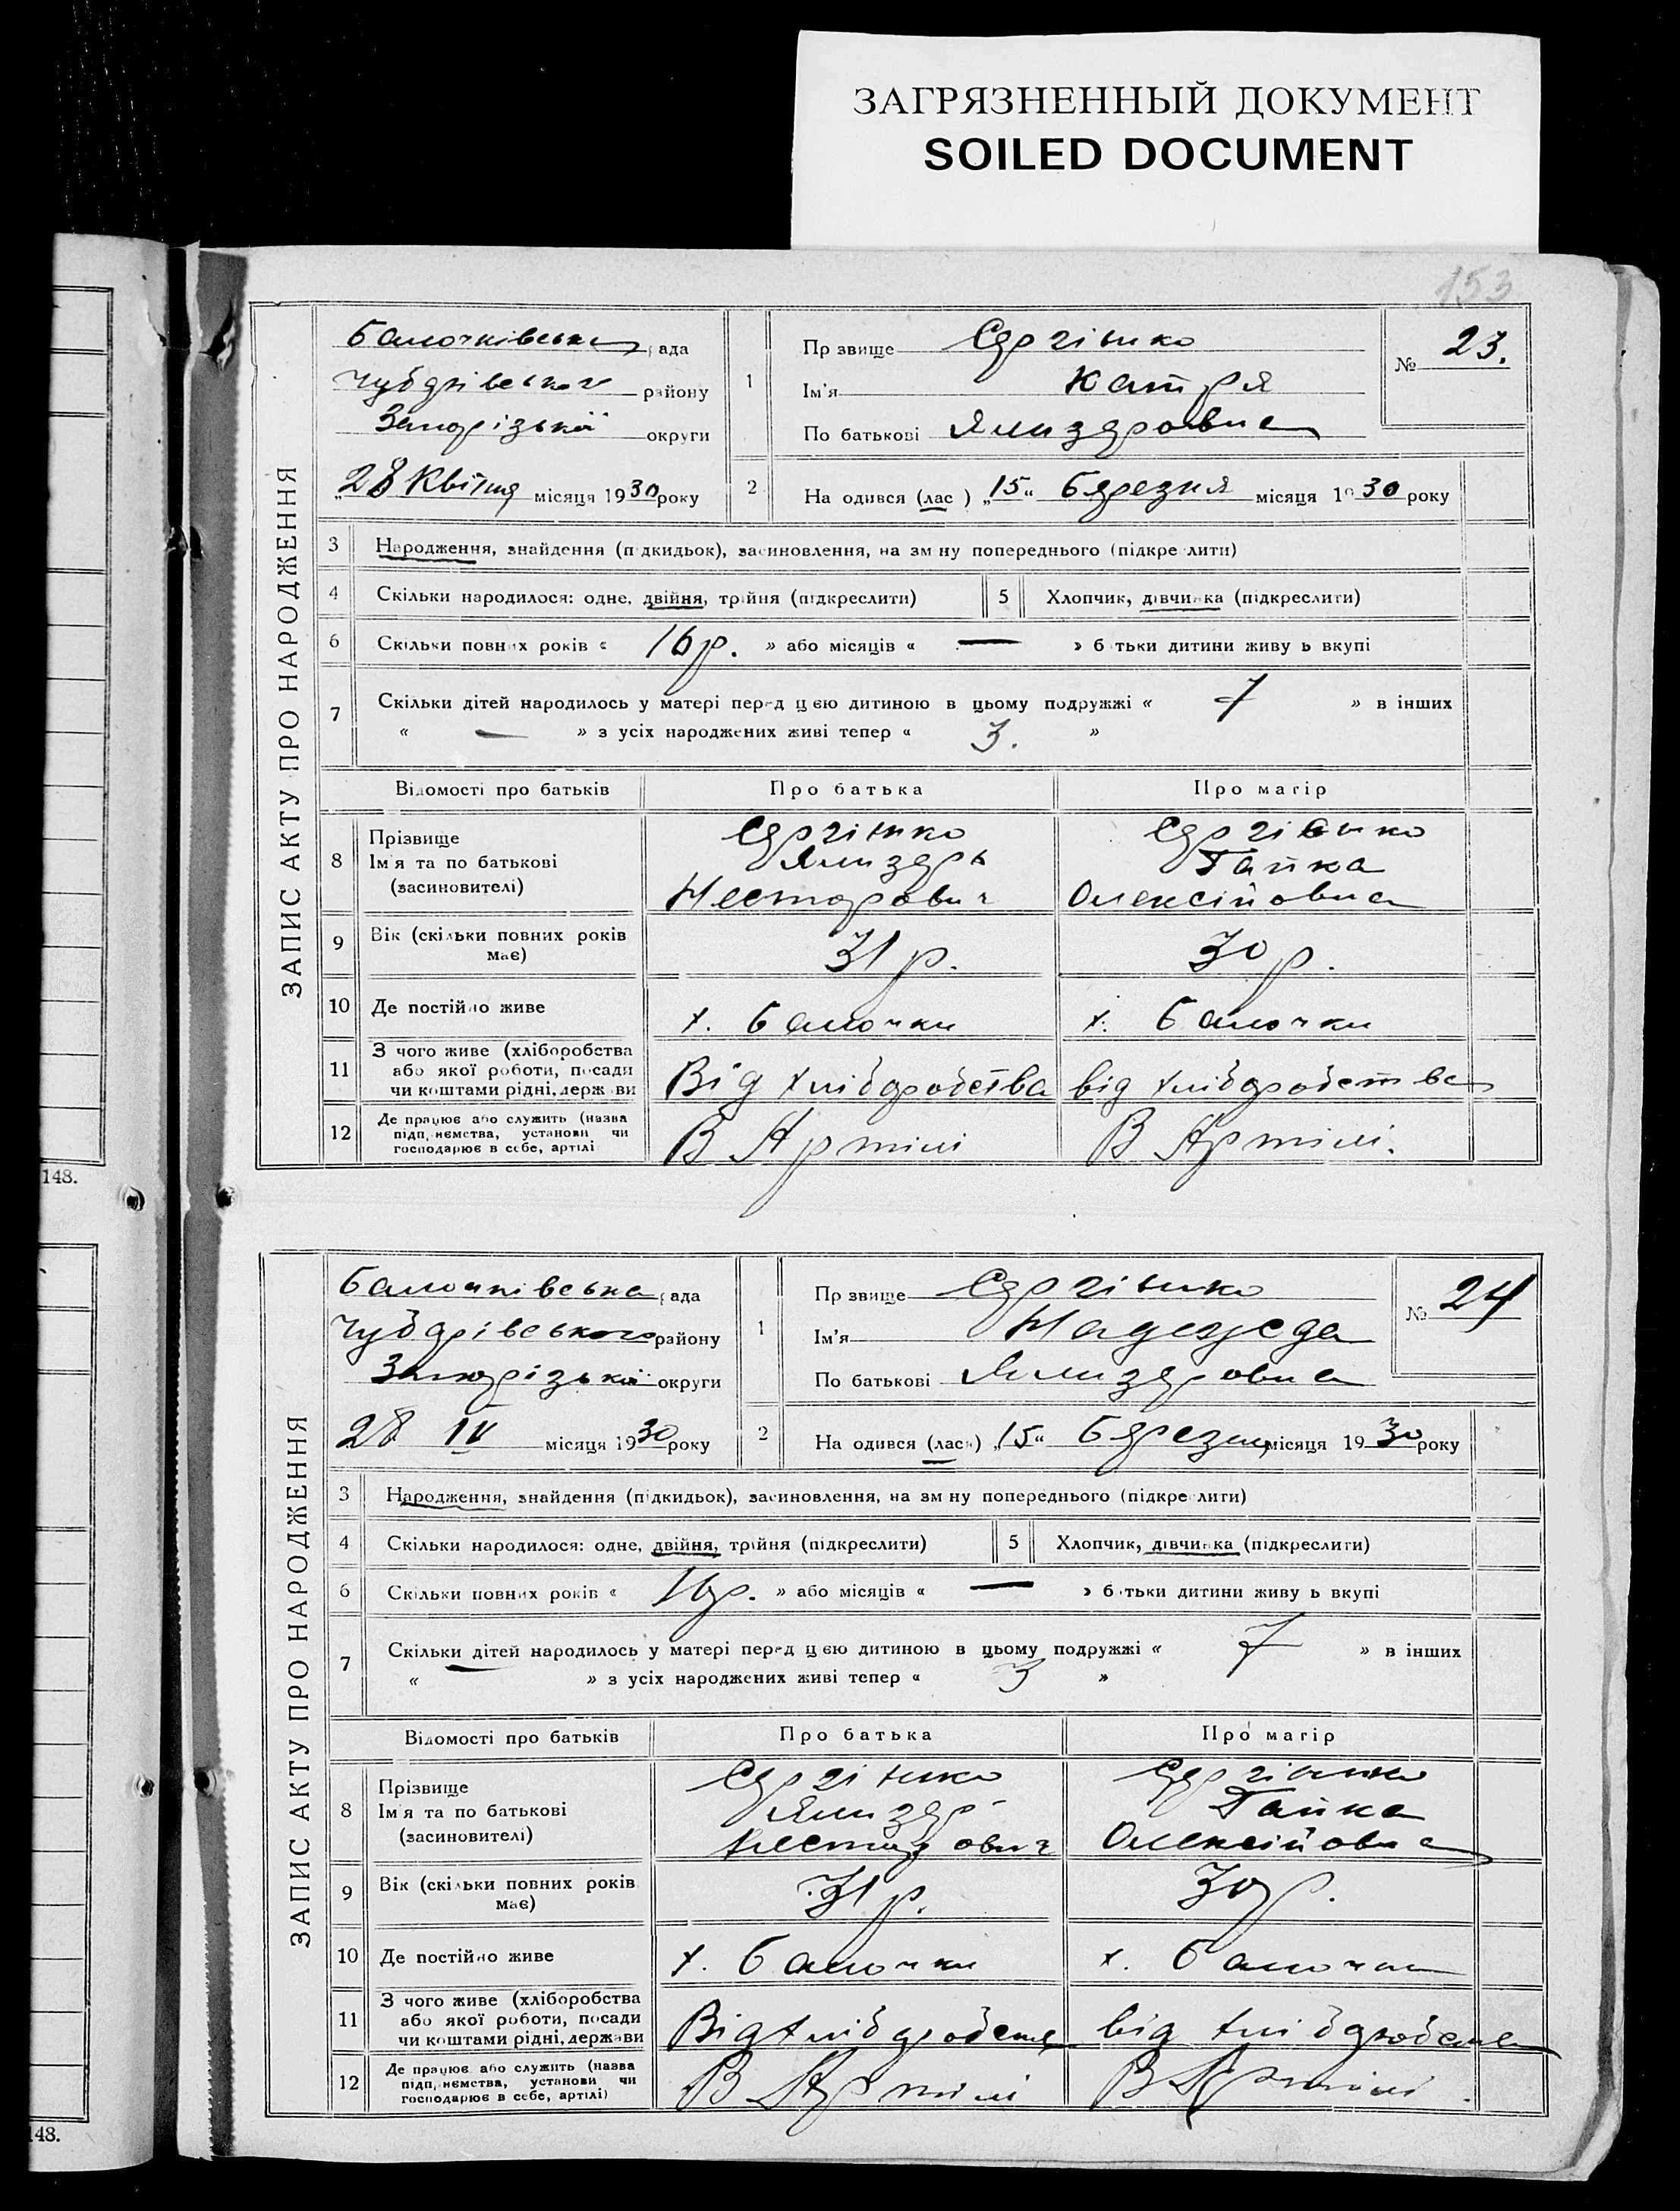 ЗАГРЯЗНЕННЫЙ ДОКУМЕНТ
SOILED DOCUMENT
153
148.
ЗАПИС АКТУ ПРО НАРОДЖЕННЯ
Балочківська рада
Чубарівського району
Запорізької округи
„28 Квітня місяця 1930 року
1
Пр звище Сергієнко
Ім'я Катря
По батькові
№ 23.
2
На одився (лас ) „15“ Березня місяця 1930 року
3 Народження, знайдення (п дкидьок), засиновлення, на зм ну попереднього (підкре лити)
4 Скільки народилося: одне, двійня, трійня (підкреслити)
5 Хлопчик, дівчинка (підкреслити)
6 Скільки повних років « 16 р. » або місяців « — » б тьки дитини живу ь вкупі
7 Скільки дітей народилось у матері перед цією дитиною в цьому подружжі « 7 » в інших
« — » з усіх народжених живі тепер « 3. »
Відомості про батьків Про батька Про матір
8 Прізвище
Ім'я та по батькові
(засиновителі)
Сергієнко
Несторович
Сергієнко
Гапка
Олексійовна
9 Вік (скільки повних років
має)
31 р. 30 р.
10 Де постійно живе х. Балочки х. Балочки
11 З чого живе (хліборобства
або якої роботи, посади
чи коштами рідні, держ ви
Від хліборобства від хліборобства
12 Де працює або служить (назва
підп, немства, установи чи
господарює в себе, артілі
В Артілі В Артілі.
148.
ЗАПИС АКТУ ПРО НАРОДЖЕННЯ
Балочківська рада
Чубарівського району
Запорізької округи
28 IV місяця 1930 року
1
Пр звище Сергієнко
Ім'я Надежда
По батькові
№ 24
2
На одився (лась) „15“ Березня місяця 1930 року
3 Народження, знайдення (підкидьок), засиновлення, на зм ну попереднього (підкре лити)
4 Скільки народилося: одне, двійня, трійня (підкреслити)
5 Хлопчик, дівчинка (підкреслити)
6 Скільки повних років « 16 р. » або місяців « — » б тьки дитини живу ь вкупі
7 Скільки дітей народилось у матері перед цією дитиною в цьому подружжі « 7 » в інших
« — » з усіх народжених живі тепер « 3 »
Відомості про батьків Про батька Про матір
8 Прізвище
Ім'я та по батькові
(засиновителі)
Сергієнко
Несторович
Сергієнко
Гапка
Олексійовна
9 Вік (скільки повних років
має)
31 р. 30 р.
10 Де постійно живе х. Балочки х. Балочки
11 З чого живе (хліборобства
або якої роботи, посади
чи коштами рідні, держави
Від хліборобства від хліборобства
12 Де працює або служить (назва
підп, немства, установи чи
господарює в себе, артілі)
В Артілі В Артілі